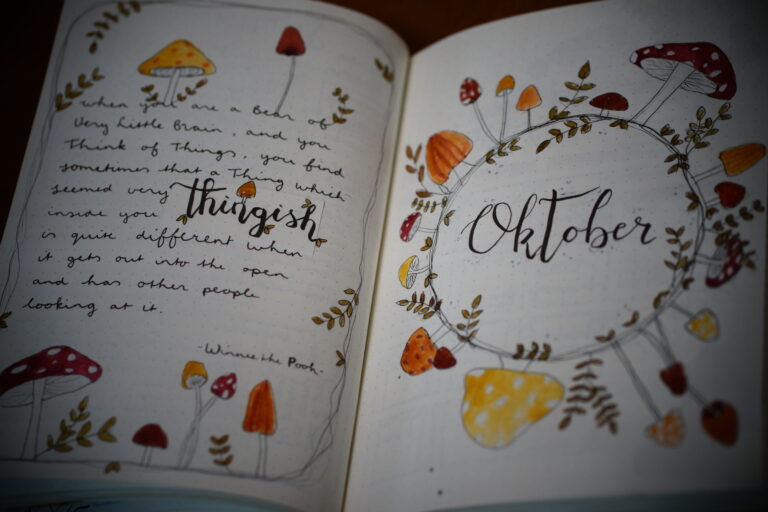 when you are a Bear of
Very little Brain, and you
Think of Things, you find
sometimes that a Thing which
seemed very thingish
inside you
is quite different when
it gets out into the open
and has other people
looking at it.
-Winnie the Pooh-
Oktober